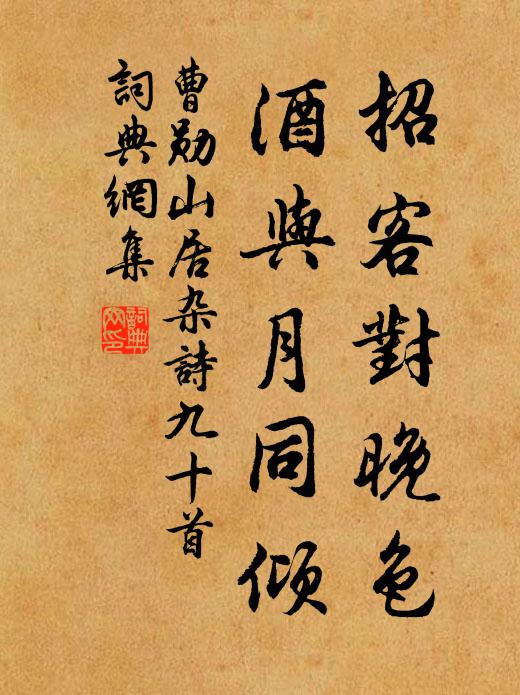 招客對晚色
酒與月同傾
曹勛山居杂詩九十首
詞典網集
詞典網印